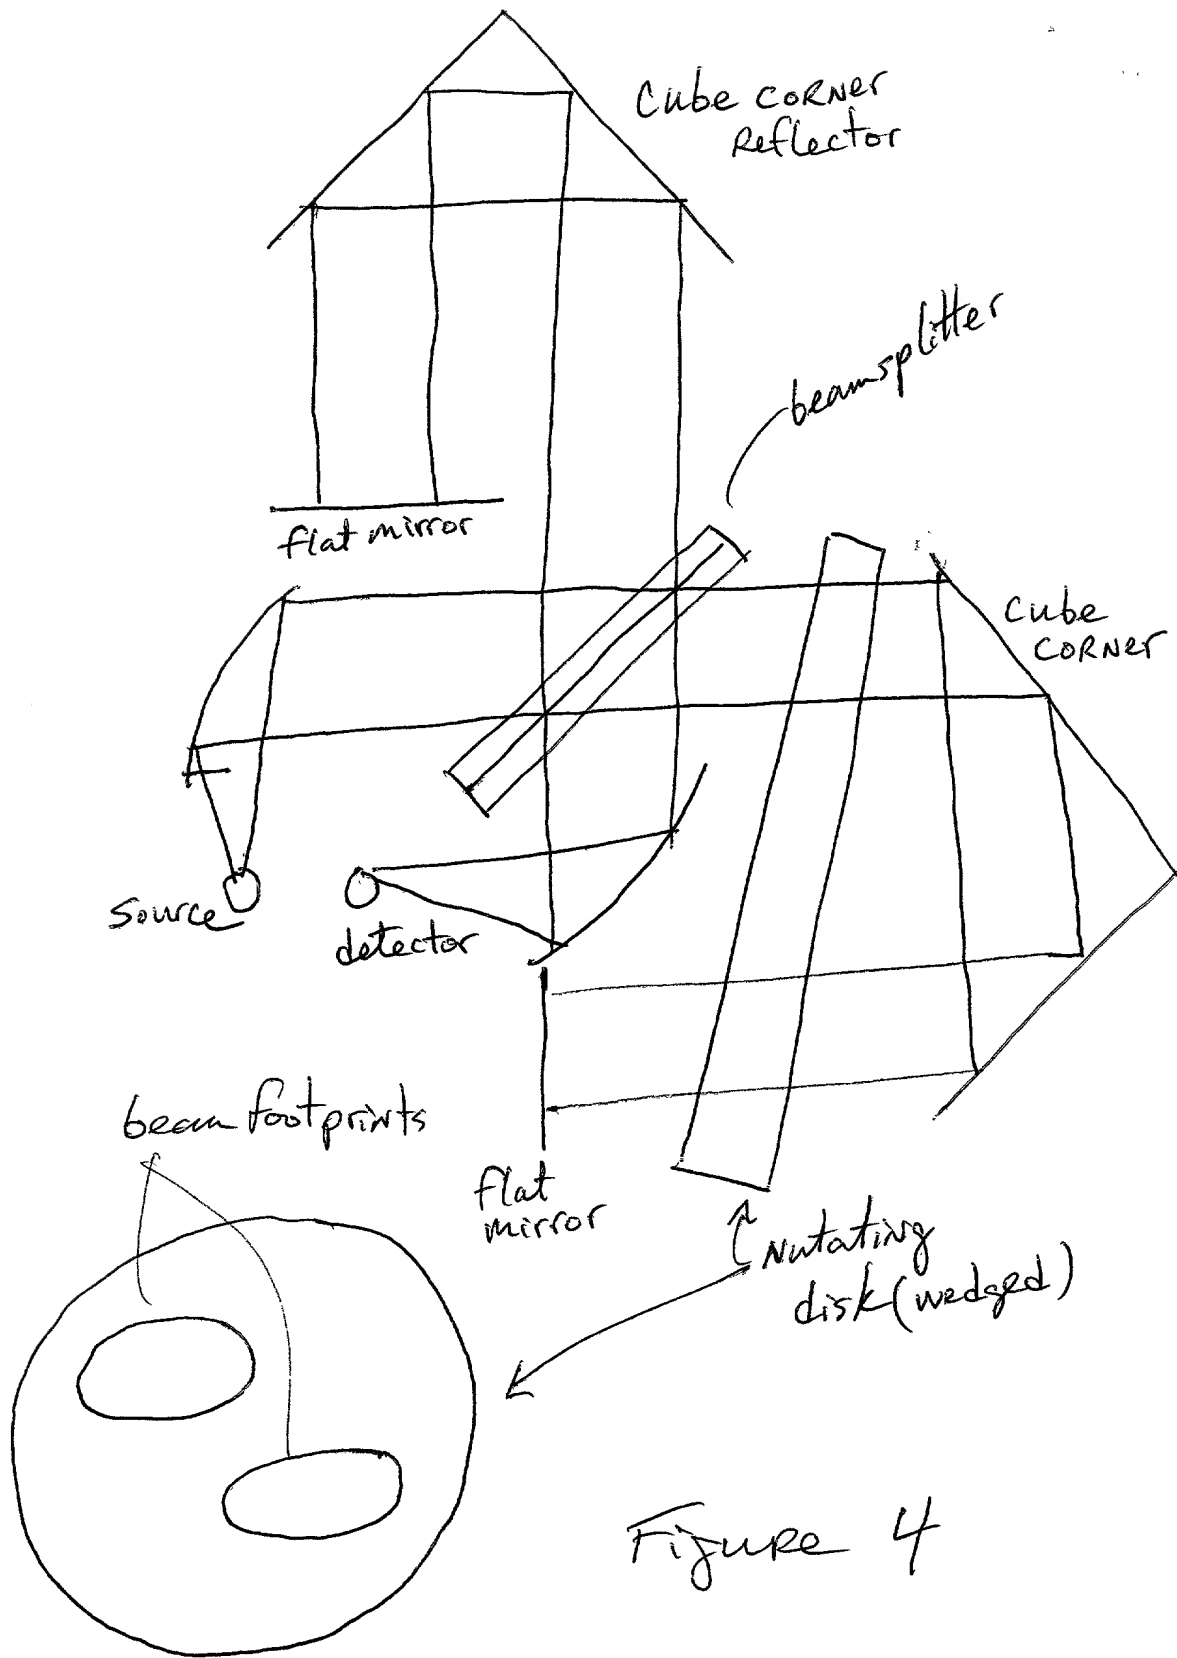 Cube CORNER
Reflector
beamsplitter
flat mirror
Cube
CORNER
Source
detector
beam footprints
flat
mirror
Nutating
disk (wedged)
Figure 4